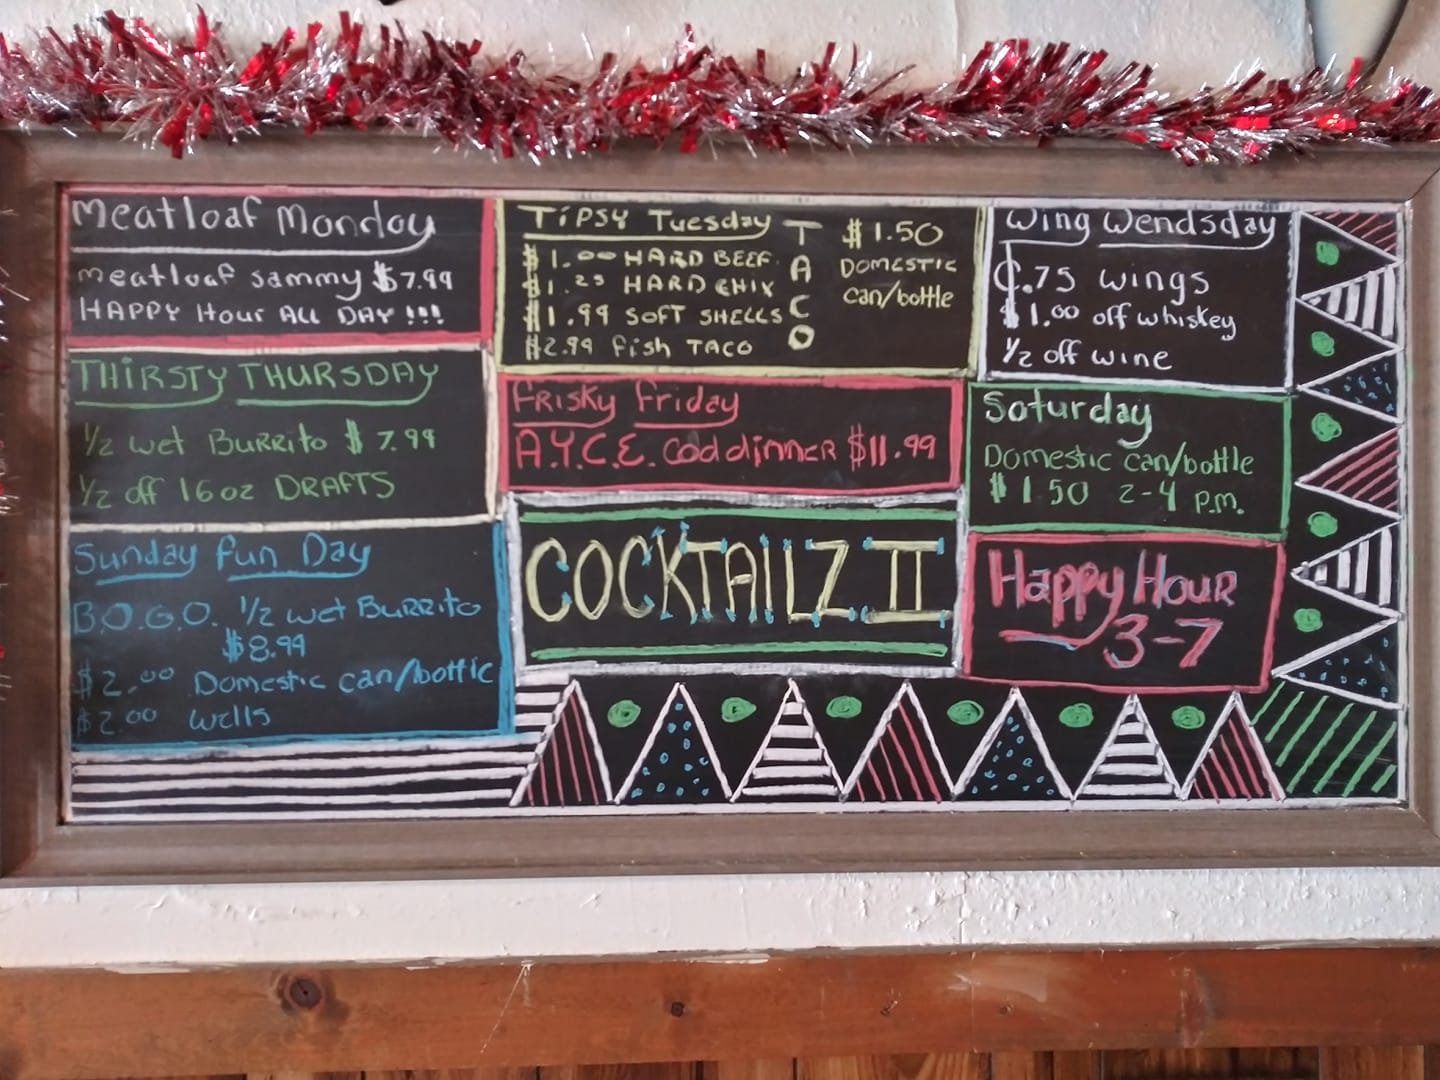 Meatloaf Monday
meatloaf sammy $7.99
HAPPY Hour ALL DAY !!!
TiPSY Tuesday
$1.00 HARD BEEF
$1.25 HARD CHIX
$1.99 SOFT SHELLS
$2.99 fish TACO
TACO
$1.50
DOMESTIC
can/bottle
Wing Wendsday
¢.75 wings
$1.00 off whiskey
1/2 off wine
THIRSTY THURSDAY
1/2 wet Burrito $7.99
1/2 off 16oz DRAFTS
Frisky Friday
A.Y.C.E. Cod dinner $11.99
Saturday
Domestic can/bottle
$1.50 2-4 p.m.
Sunday Fun Day
B.O.G.O. 1/2 wet Burrito
$8.99
$2.00 Domestic can/bottle
$2.00 wells
COCKTAILZ II
Happy Hour
3-7